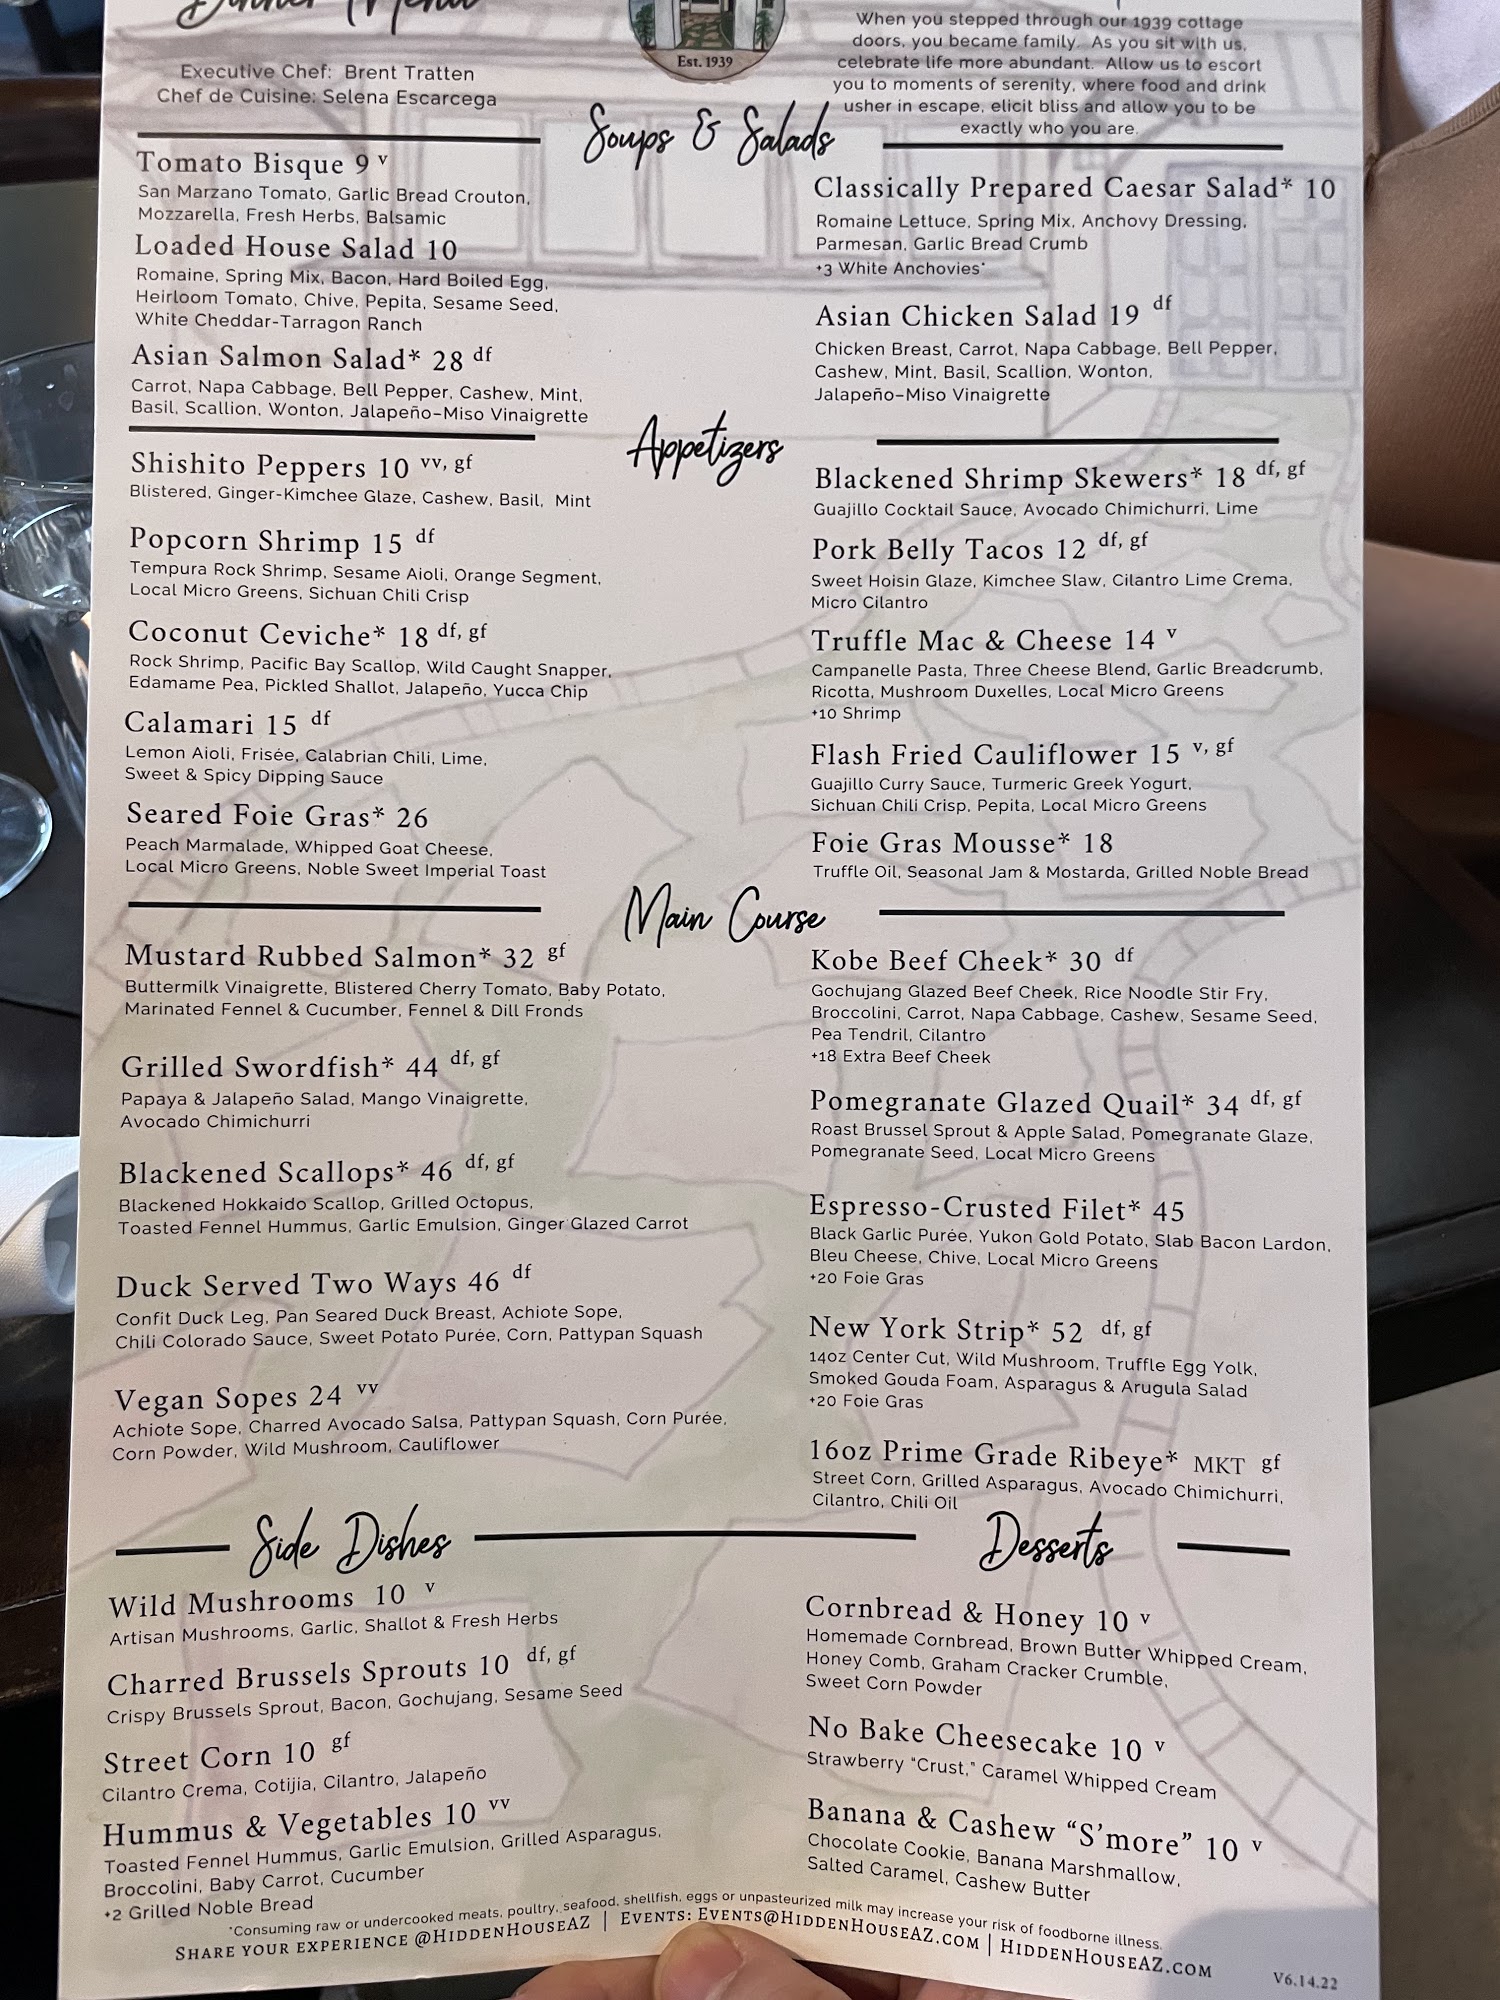 Dinner Menu
Executive Chef: Brent Tratten
Chef de Cuisine: Selena Escarcega
Est. 1939
When you stepped through our 1939 cottage
doors, you became family. As you sit with us,
celebrate life more abundant. Allow us to escort
you to moments of serenity, where food and drink
usher in escape, elicit bliss and allow you to be
exactly who you are.
Soups & Salads
Tomato Bisque 9 v
San Marzano Tomato, Garlic Bread Crouton,
Mozzarella, Fresh Herbs, Balsamic
Loaded House Salad 10
Romaine, Spring Mix, Bacon, Hard Boiled Egg,
Heirloom Tomato, Chive, Pepita, Sesame Seed,
White Cheddar-Tarragon Ranch
Asian Salmon Salad* 28 df
Carrot, Napa Cabbage, Bell Pepper, Cashew, Mint,
Basil, Scallion, Wonton, Jalapeño-Miso Vinaigrette
Classically Prepared Caesar Salad* 10
Romaine Lettuce, Spring Mix, Anchovy Dressing,
Parmesan, Garlic Bread Crumb
+3 White Anchovies*
Asian Chicken Salad 19 df
Chicken Breast, Carrot, Napa Cabbage, Bell Pepper,
Cashew, Mint, Basil, Scallion, Wonton,
Jalapeño-Miso Vinaigrette
Appetizers
Shishito Peppers 10 vv, gf
Blistered, Ginger-Kimchee Glaze, Cashew, Basil, Mint
Popcorn Shrimp 15 df
Tempura Rock Shrimp, Sesame Aioli, Orange Segment,
Local Micro Greens, Sichuan Chili Crisp
Coconut Ceviche* 18 df, gf
Rock Shrimp, Pacific Bay Scallop, Wild Caught Snapper,
Edamame Pea, Pickled Shallot, Jalapeño, Yucca Chip
Calamari 15 df
Lemon Aioli, Frisée, Calabrian Chili, Lime,
Sweet & Spicy Dipping Sauce
Seared Foie Gras* 26
Peach Marmalade, Whipped Goat Cheese,
Local Micro Greens, Noble Sweet Imperial Toast
Blackened Shrimp Skewers* 18 df, gf
Guajillo Cocktail Sauce, Avocado Chimichurri, Lime
Pork Belly Tacos 12 df, gf
Sweet Hoisin Glaze, Kimchee Slaw, Cilantro Lime Crema,
Micro Cilantro
Truffle Mac & Cheese 14 v
Campanelle Pasta, Three Cheese Blend, Garlic Breadcrumb,
Ricotta, Mushroom Duxelles, Local Micro Greens
+10 Shrimp
Flash Fried Cauliflower 15 v, gf
Guajillo Curry Sauce, Turmeric Greek Yogurt,
Sichuan Chili Crisp, Pepita, Local Micro Greens
Foie Gras Mousse* 18
Truffle Oil, Seasonal Jam & Mostarda, Grilled Noble Bread
Main Course
Mustard Rubbed Salmon* 32 gf
Buttermilk Vinaigrette, Blistered Cherry Tomato, Baby Potato,
Marinated Fennel & Cucumber, Fennel & Dill Fronds
Grilled Swordfish* 44 df, gf
Papaya & Jalapeño Salad, Mango Vinaigrette,
Avocado Chimichurri
Blackened Scallops* 46 df, gf
Blackened Hokkaido Scallop, Grilled Octopus,
Toasted Fennel Hummus, Garlic Emulsion, Ginger Glazed Carrot
Duck Served Two Ways 46 df
Confit Duck Leg, Pan Seared Duck Breast, Achiote Sope,
Chili Colorado Sauce, Sweet Potato Purée, Corn, Pattypan Squash
Vegan Sopes 24 vv
Achiote Sope, Charred Avocado Salsa, Pattypan Squash, Corn Purée,
Corn Powder, Wild Mushroom, Cauliflower
Kobe Beef Cheek* 30 df
Gochujang Glazed Beef Cheek, Rice Noodle Stir Fry,
Broccolini, Carrot, Napa Cabbage, Cashew, Sesame Seed,
Pea Tendril, Cilantro
+18 Extra Beef Cheek
Pomegranate Glazed Quail* 34 df, gf
Roast Brussel Sprout & Apple Salad, Pomegranate Glaze,
Pomegranate Seed, Local Micro Greens
Espresso-Crusted Filet* 45
Black Garlic Purée, Yukon Gold Potato, Slab Bacon Lardon,
Bleu Cheese, Chive, Local Micro Greens
+20 Foie Gras
New York Strip* 52 df, gf
14oz Center Cut, Wild Mushroom, Truffle Egg Yolk,
Smoked Gouda Foam, Asparagus & Arugula Salad
+20 Foie Gras
16oz Prime Grade Ribeye* MKT gf
Street Corn, Grilled Asparagus, Avocado Chimichurri,
Cilantro, Chili Oil
Side Dishes
Wild Mushrooms 10 v
Artisan Mushrooms, Garlic, Shallot & Fresh Herbs
Charred Brussels Sprouts 10 df, gf
Crispy Brussels Sprout, Bacon, Gochujang, Sesame Seed
Street Corn 10 gf
Cilantro Crema, Cotijia, Cilantro, Jalapeño
Hummus & Vegetables 10 vv
Toasted Fennel Hummus, Garlic Emulsion, Grilled Asparagus,
Broccolini, Baby Carrot, Cucumber
+2 Grilled Noble Bread
Desserts
Cornbread & Honey 10 v
Homemade Cornbread, Brown Butter Whipped Cream,
Honey Comb, Graham Cracker Crumble,
Sweet Corn Powder
No Bake Cheesecake 10 v
Strawberry "Crust," Caramel Whipped Cream
Banana & Cashew "S'more" 10 v
Chocolate Cookie, Banana Marshmallow,
Salted Caramel, Cashew Butter
*Consuming raw or undercooked meats, poultry, seafood, shellfish, eggs or unpasteurized milk may increase your risk of foodborne illness.
Share your experience @HiddenHouseAZ | Events: Events@HiddenHouseAZ.com | HiddenHouseAZ.com
V6.14.22